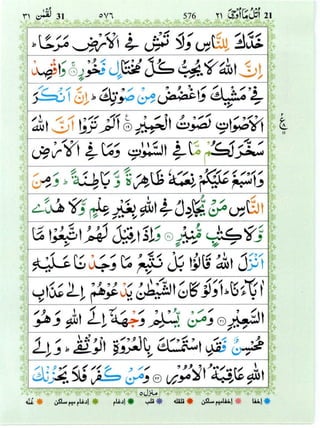 ٣١ لقمٰن 31 ٥٧٦ 576 ٢١ اتل ما اوحی 21
خَدَّكَ لِلنَّاسِ وَلَا تَمْشِ فِي الْاَرْضِ مَرَحًا ؕ
اِنَّ اللّٰهَ لَا يُحِبُّ كُلَّ مُخْتَالٍ فَخُوْرٍ ۚ ١٨ وَاقْصِدْ
فِيْ مَشْيِكَ وَاغْضُضْ مِنْ صَوْتِكَ ؕ اِنَّ اَنْكَرَ
الْاَصْوَاتِ لَصَوْتُ الْحَمِيْرِ ١٩ اَلَمْ تَرَوْا اَنَّ اللّٰهَ
سَخَّرَ لَكُمْ مَّا فِي السَّمٰوٰتِ وَمَا فِي الْاَرْضِ
وَاَسْبَغَ عَلَيْكُمْ نِعَمَهٗ ظَاهِرَةً وَّ بَاطِنَةً ؕ وَمِنَ
النَّاسِ مَنْ يُّجَادِلُ فِي اللّٰهِ بِغَيْرِ عِلْمٍ وَّلَا هُدًى
وَّلَا كِتٰبٍ مُّنِيْرٍ ٢٠ وَاِذَا قِيْلَ لَهُمُ اتَّبِعُوْا مَاۤ
اَنْزَلَ اللّٰهُ قَالُوْا بَلْ نَتَّبِعُ مَا وَجَدْنَا عَلَيْهِ
اٰبَآءَنَا ؕ اَوَلَوْ كَانَ الشَّيْطٰنُ يَدْعُوْهُمْ اِلٰى عَذَابِ
السَّعِيْرِ ٢١ وَمَنْ يُّسْلِمْ وَجْهَهٗۤ اِلَى اللّٰهِ وَهُوَ
مُحْسِنٌ فَقَدِ اسْتَمْسَكَ بِالْعُرْوَةِ الْوُثْقٰى ؕ وَاِلَى
اللّٰهِ عَاقِبَةُ الْاُمُوْرِ ٢٢ وَمَنْ كَفَرَ فَلَا يَحْزُنْكَ
منزل ٥
اخفا اخفا میم ساکن قلقله قلب ادغام ادغام میم ساکن غنّه